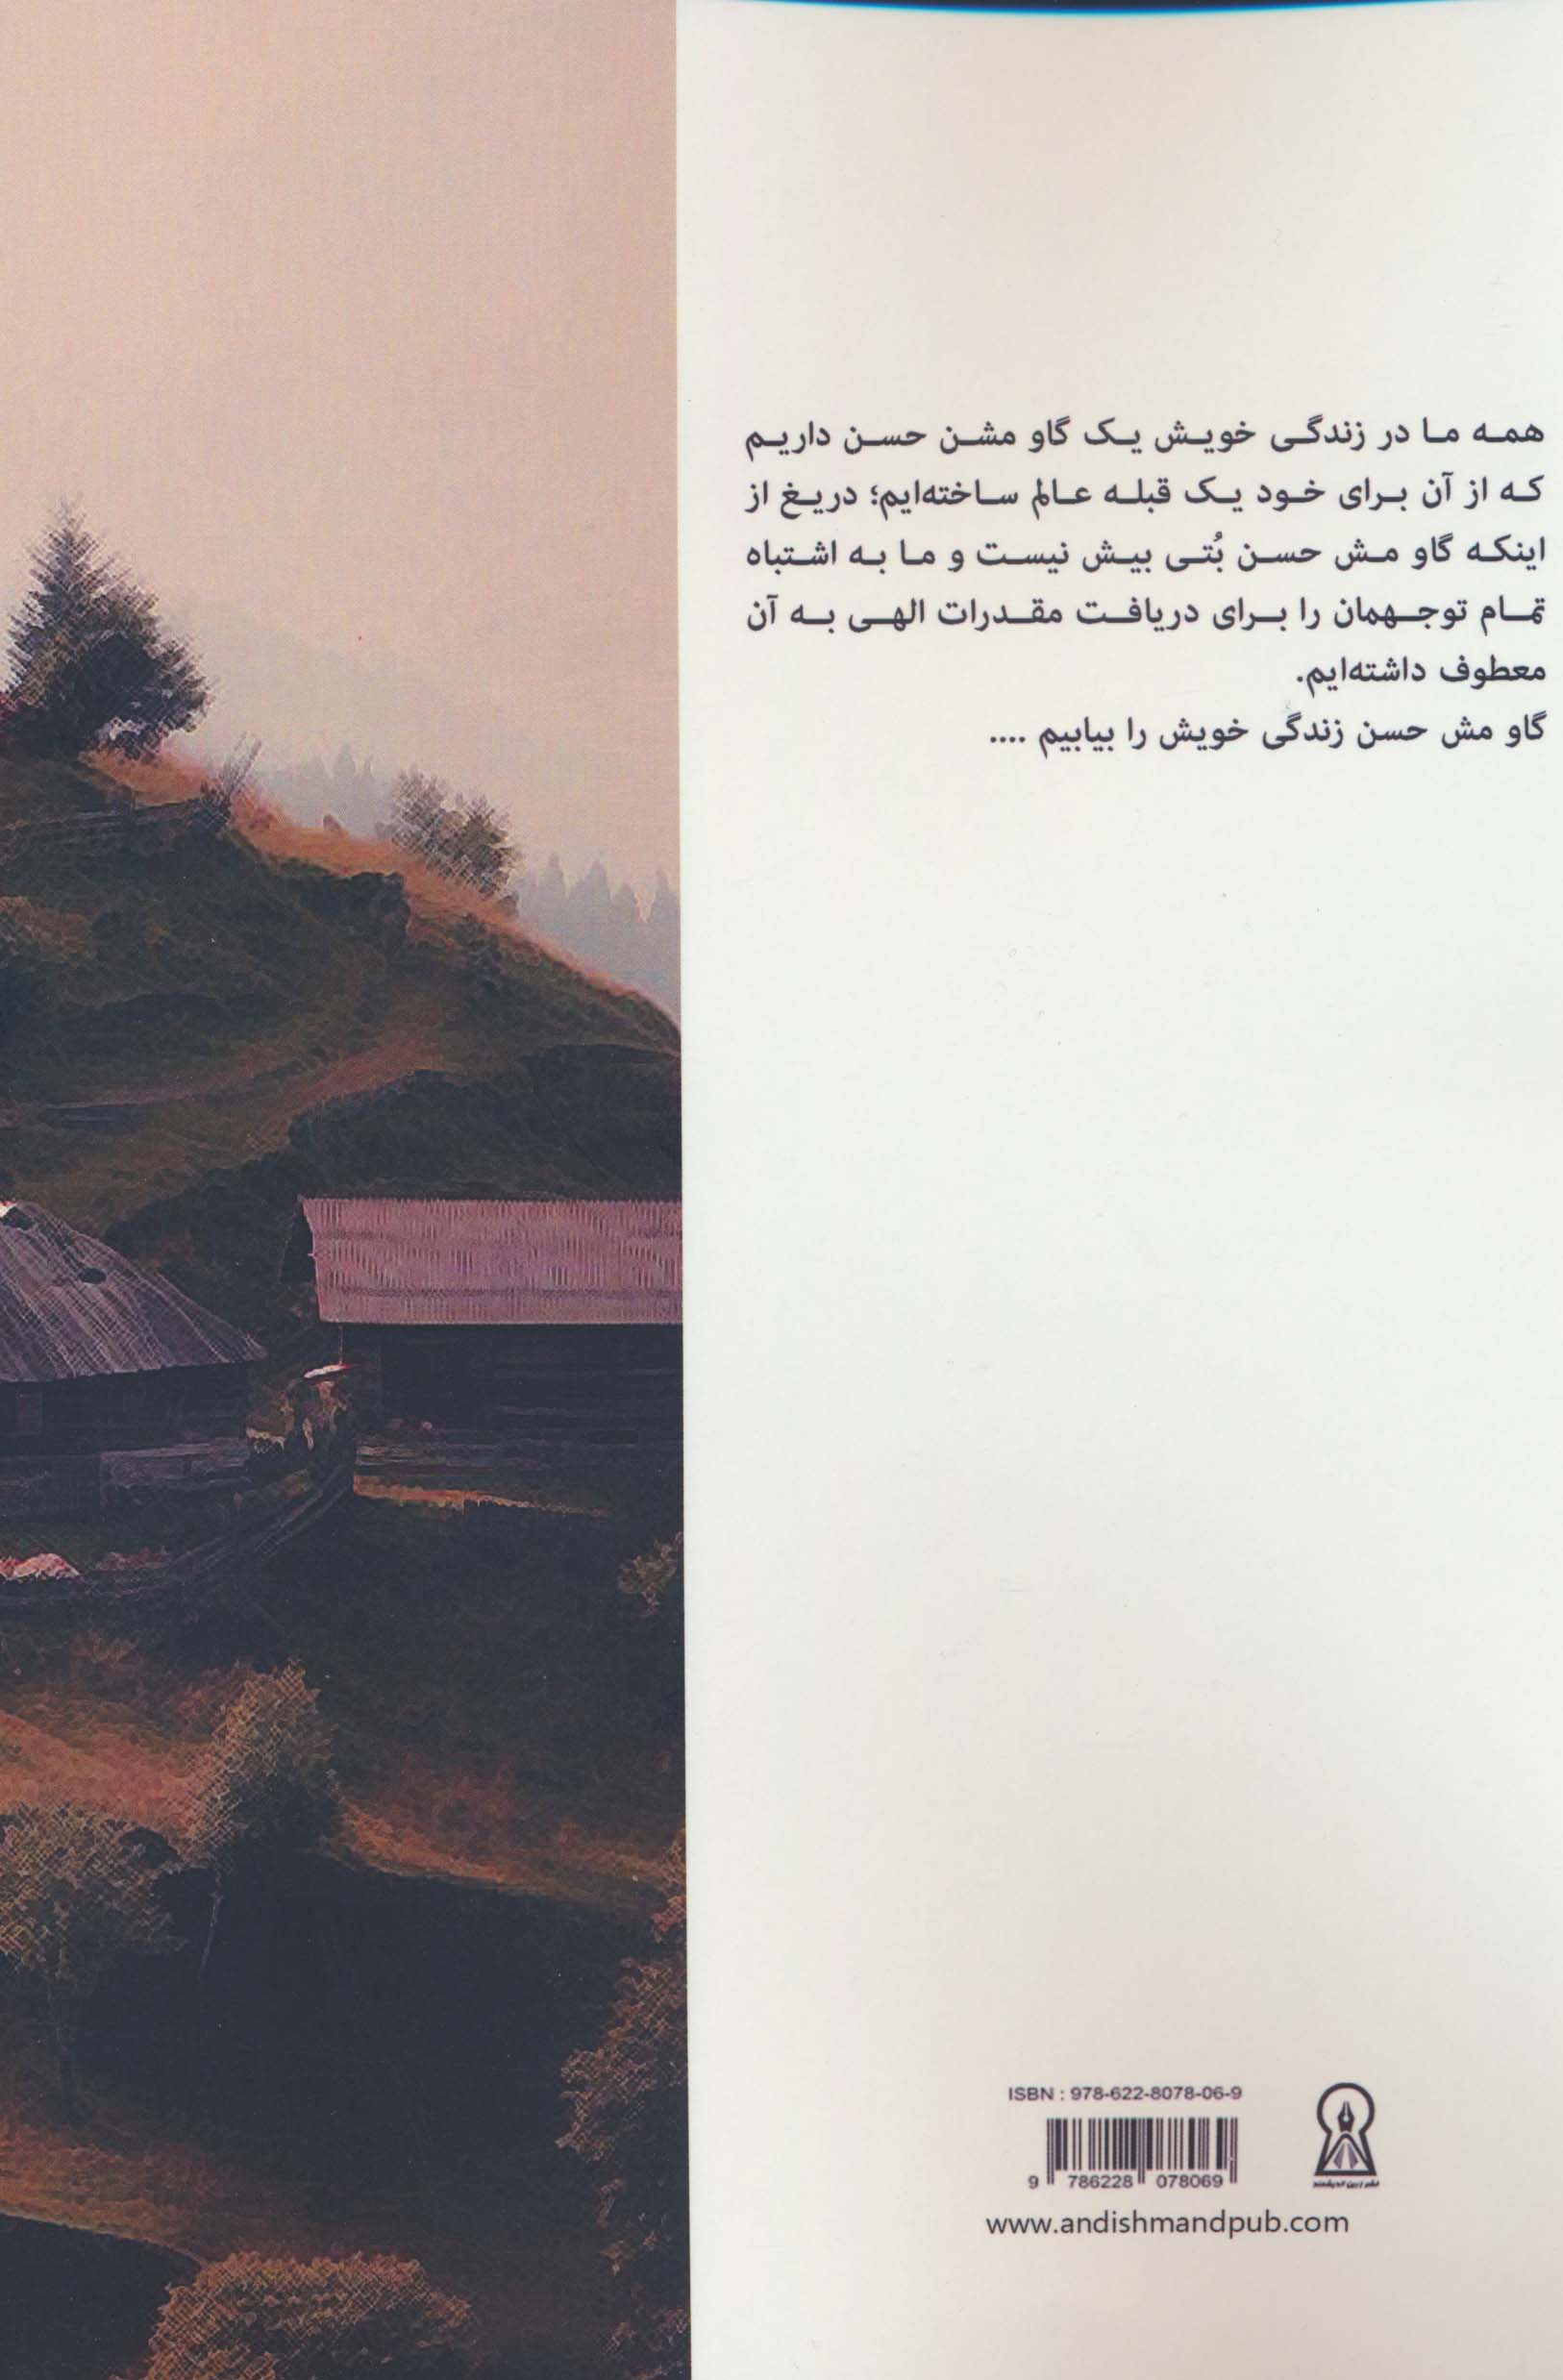 همه ما در زندگی خویش یک گاو مشن حسن داریم
که از آن برای خود یک قبله عالم ساخته‌ایم؛ دریغ از
اینکه گاو مش حسن بُتی بیش نیست و ما به اشتباه
تمام توجهمان را برای دریافت مقدرات الهی به آن
معطوف داشته‌ایم.
گاو مش حسن زندگی خویش را بیابیم ....
ISBN : 978-622-8078-06-9
9 786228 078069
www.andishmandpub.com